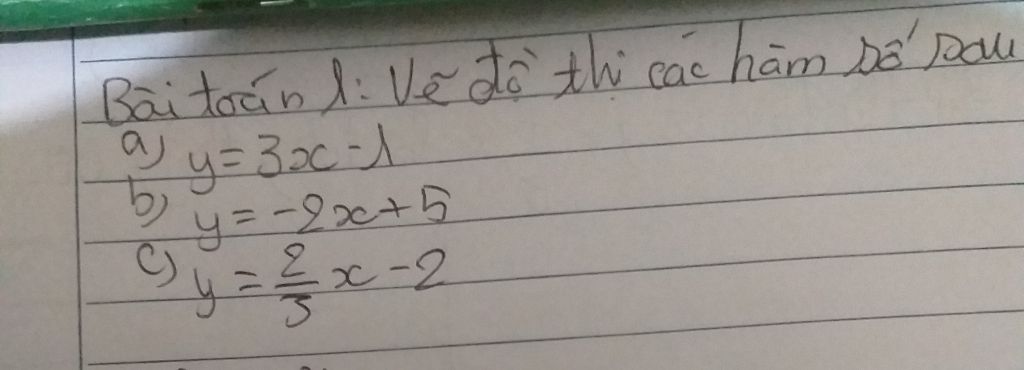 Bài toán 1: Vẽ đồ thị các hàm số sau
a) y = 3x - 1
b) y = -2x + 5
c) y = 2/3 x - 2